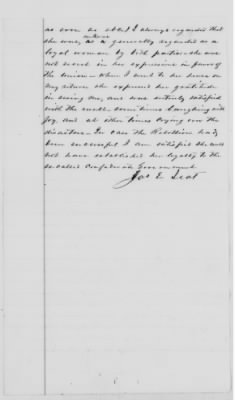 as ever be able I always regarded that
she was, as a generally regarded as a
loyal woman by both parties she was
not
in her expressions in favor of
the Union — When I went to her house on
my return she expressed her gratitude
in seeing me, and was entirely satisfied
with the result sometimes laughing with
joy, and at other times crying over the
disasters. In case the Rebellion had
been successful I am satisfied she could
not have established her loyalty to the
so called Confederate Government
Jas E